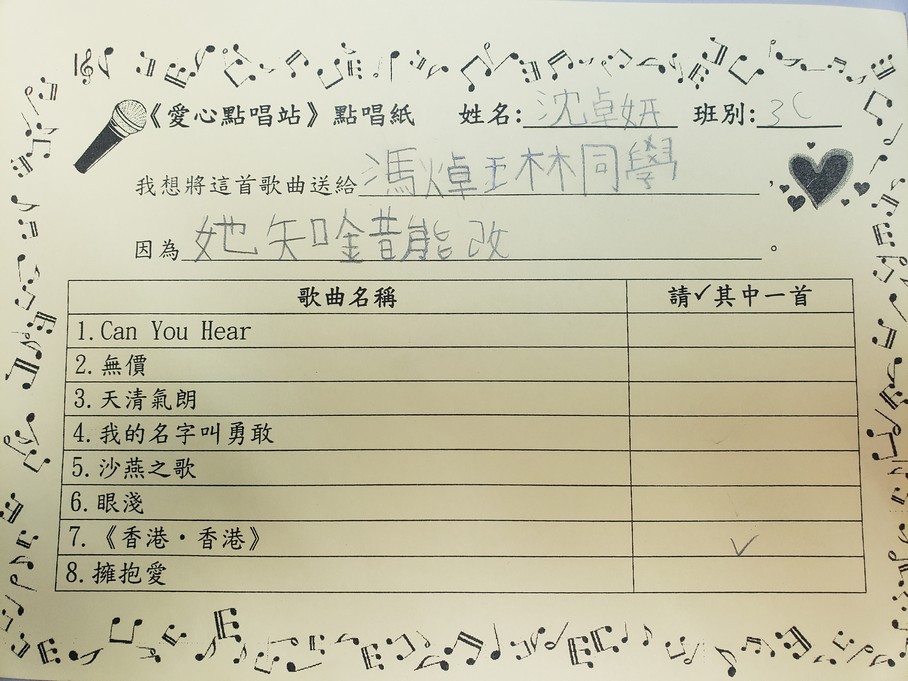 《愛心點唱站》點唱紙 姓名: 沈卓妍 班別: 3C
我想將這首歌曲送給 馮焯玨林同學 ,
因為 她知唫昔能改 。
歌曲名稱 請✓其中一首
1.Can You Hear
2.無價
3.天清氣朗
4.我的名字叫勇敢
5.沙燕之歌
6.眼淺
7.《香港·香港》 ✓
8.擁抱愛